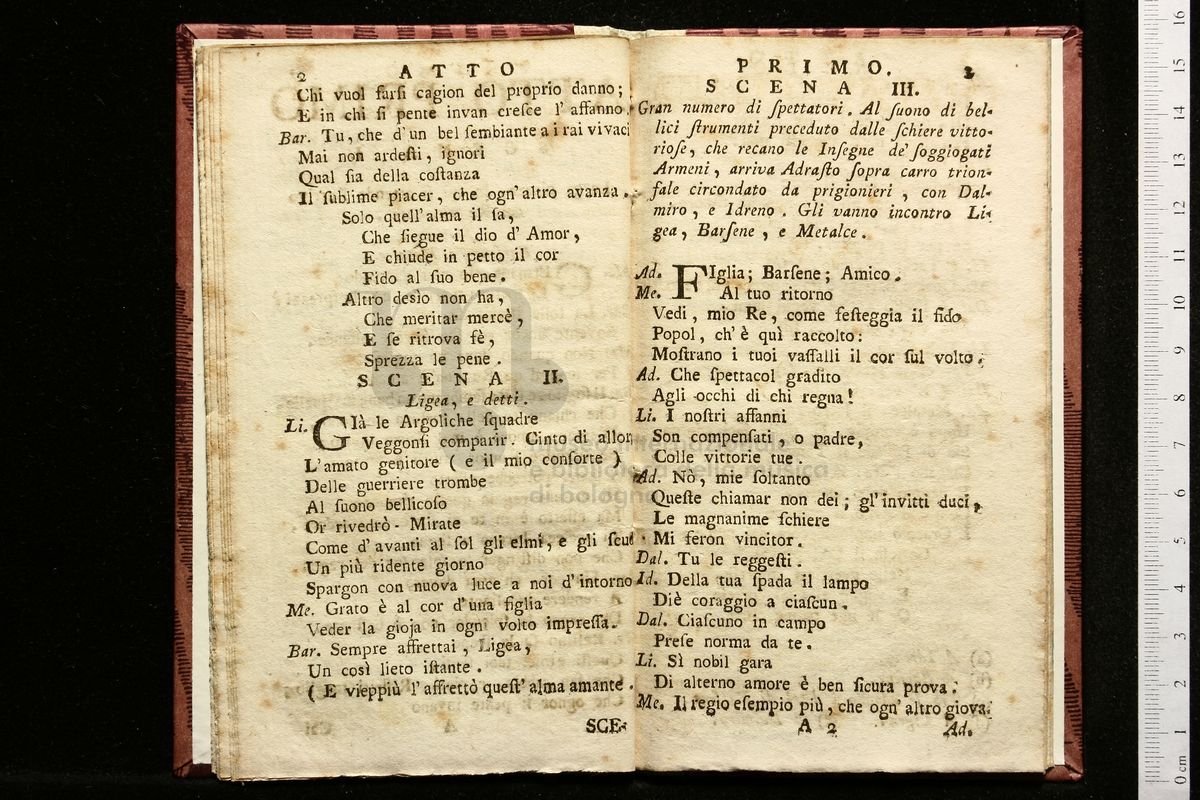 2 ATTO
Chi vuol farſi cagion del proprio danno;
E in chi ſi pente invan creſce l' affanno.
Bar. Tu, che d'un bel ſembiante a i rai vivaci
Mai non ardeſti, ignori
Qual ſia della coſtanza
Il ſublime piacer, che ogn'altro avanza.
Solo quell'alma il ſa,
Che ſiegue il dio d'Amor,
E chiude in petto il cor
Fido al ſuo bene.
Altro desìo non ha,
Che meritar mercè,
E ſe ritrova fè,
Sprezza le pene.
SCENA II.
Ligea, e detti.
Li. GIà le Argoliche ſquadre
Veggonſi comparir. Cinto di allori
L'amato genitore ( e il mio conſorte )
Delle guerriere trombe
Al ſuono bellicoſo
Or rivedrò - Mirate
Come d'avanti al ſol gli elmi, e gli ſcudi
Un più ridente giorno
Spargon con nuova luce a noi d'intorno
Me. Grato è al cor d'una figlia
Veder la gioja in ogni volto impreſſa.
Bar. Sempre affrettai, Ligea,
Un così lieto iſtante.
( E vieppiù l'affrettò queſt'alma amante.
SCE-
PRIMO. 3
SCENA III.
Gran numero di ſpettatori. Al ſuono di bel-
lici ſtrumenti preceduto dalle ſchiere vitto-
rioſe, che recano le Inſegne de' ſoggiogati
Armeni, arriva Adraſto ſopra carro trion-
fale circondato da prigionieri, con Dal-
miro, e Idreno. Gli vanno incontro Li-
gea, Barſene, e Metalce.
Ad. FIglia; Barſene; Amico.
Me. Al tuo ritorno
Vedi, mio Re, come feſteggia il fido
Popol, ch'è quì raccolto:
Moſtrano i tuoi vaſſalli il cor ſul volto.
Ad. Che ſpettacol gradito
Agli occhi di chi regna!
Li. I noſtri affanni
Son compenſati, o padre,
Colle vittorie tue.
Ad. Nò, mie ſoltanto
Queſte chiamar non dei; gl'invitti duci,
Le magnanime ſchiere
Mi feron vincitor.
Dal. Tu le reggeſti.
Id. Della tua ſpada il lampo
Diè coraggio a ciaſcun.
Dal. Ciaſcuno in campo
Preſe norma da te.
Li. Sì nobil gara
Di alterno amore è ben ſicura prova.
Me. Il regio eſempio più, che ogn'altro giova.
A 2 Ad.